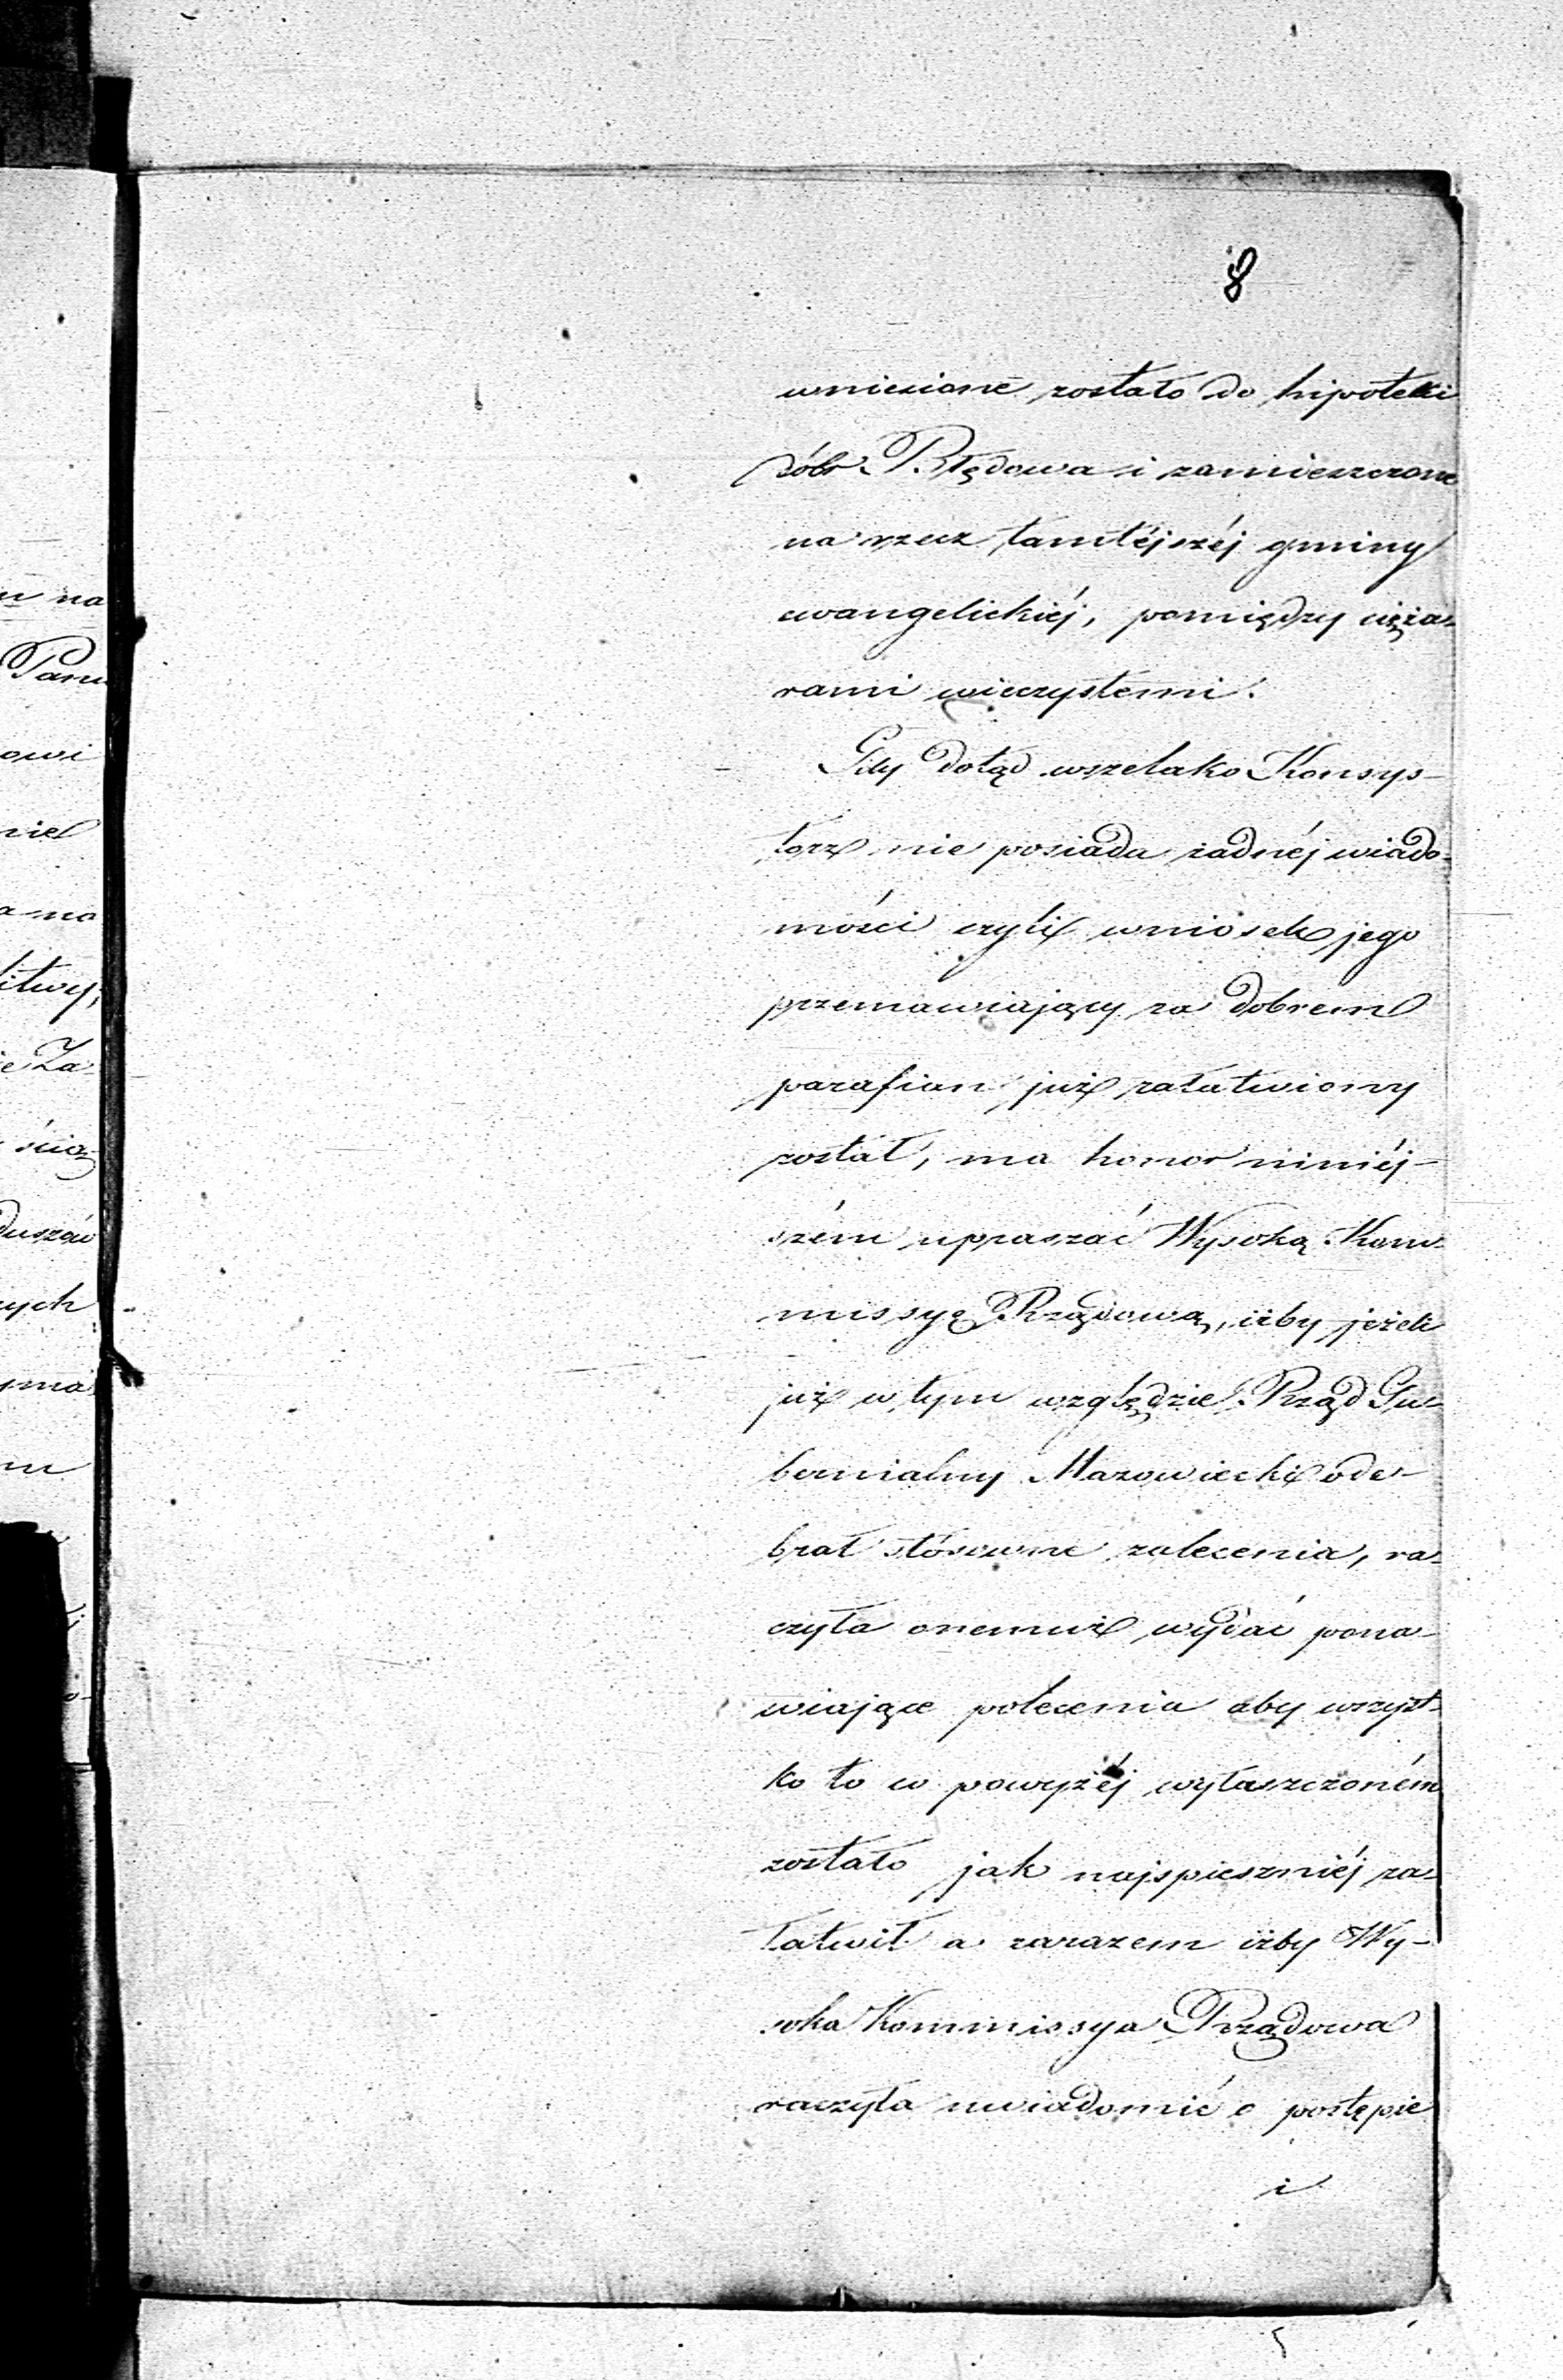 8
wniesione zostało do hipoteki
dóbr Błędowa i zamieszczone
na rzecz tamtéjszéj gminy
ewangelickiéj, pomiędzy cięża-
rami wieczystemi.
Gdy dotąd wszelako Konsys-
torz nie posiada żadnéj wiado-
mości czyli wniosek jego
przemawiający za dobrem
parafian już załatwiony
został, ma honor niniéj-
szém upraszać Wysoką Kom-
missyą Rządową, iżby jeżeli
już w tym względzie Rząd Gu-
bernialny Mazowiecki ode-
brał stósowne zalecenia, ra-
czyła onemuż wydać pona-
wiające polecenia aby wszyst-
ko to w powyżéj wyłaszczoném
zostało jak najspieszniéj za-
łatwił a zarazem iżby Wy-
soka Kommissya Rządowa
raczyła uwiadomić o postępie
i
n na
Panu
owi
niel
a na
litwy,
ie Za
ścią
duszów
nych
yma
m